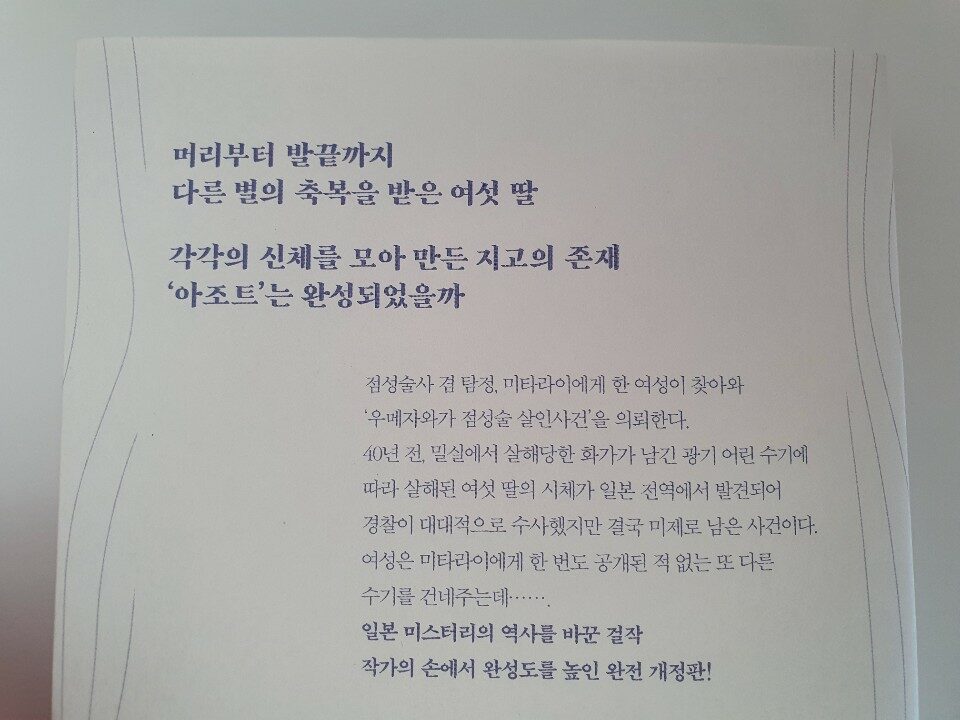 머리부터 발끝까지
다른 별의 축복을 받은 여섯 딸
각각의 신체를 모아 만든 지고의 존재
‘아조트’는 완성되었을까
점성술사 겸 탐정, 미타라이에게 한 여성이 찾아와
‘우메자와가 점성술 살인사건’을 의뢰한다.
40년 전, 밀실에서 살해당한 화가가 남긴 광기 어린 수기에
따라 살해된 여섯 딸의 시체가 일본 전역에서 발견되어
경찰이 대대적으로 수사했지만 결국 미제로 남은 사건이다.
여성은 미타라이에게 한 번도 공개된 적 없는 또 다른
수기를 건네주는데…….
일본 미스터리의 역사를 바꾼 걸작
작가의 손에서 완성도를 높인 완전 개정판!